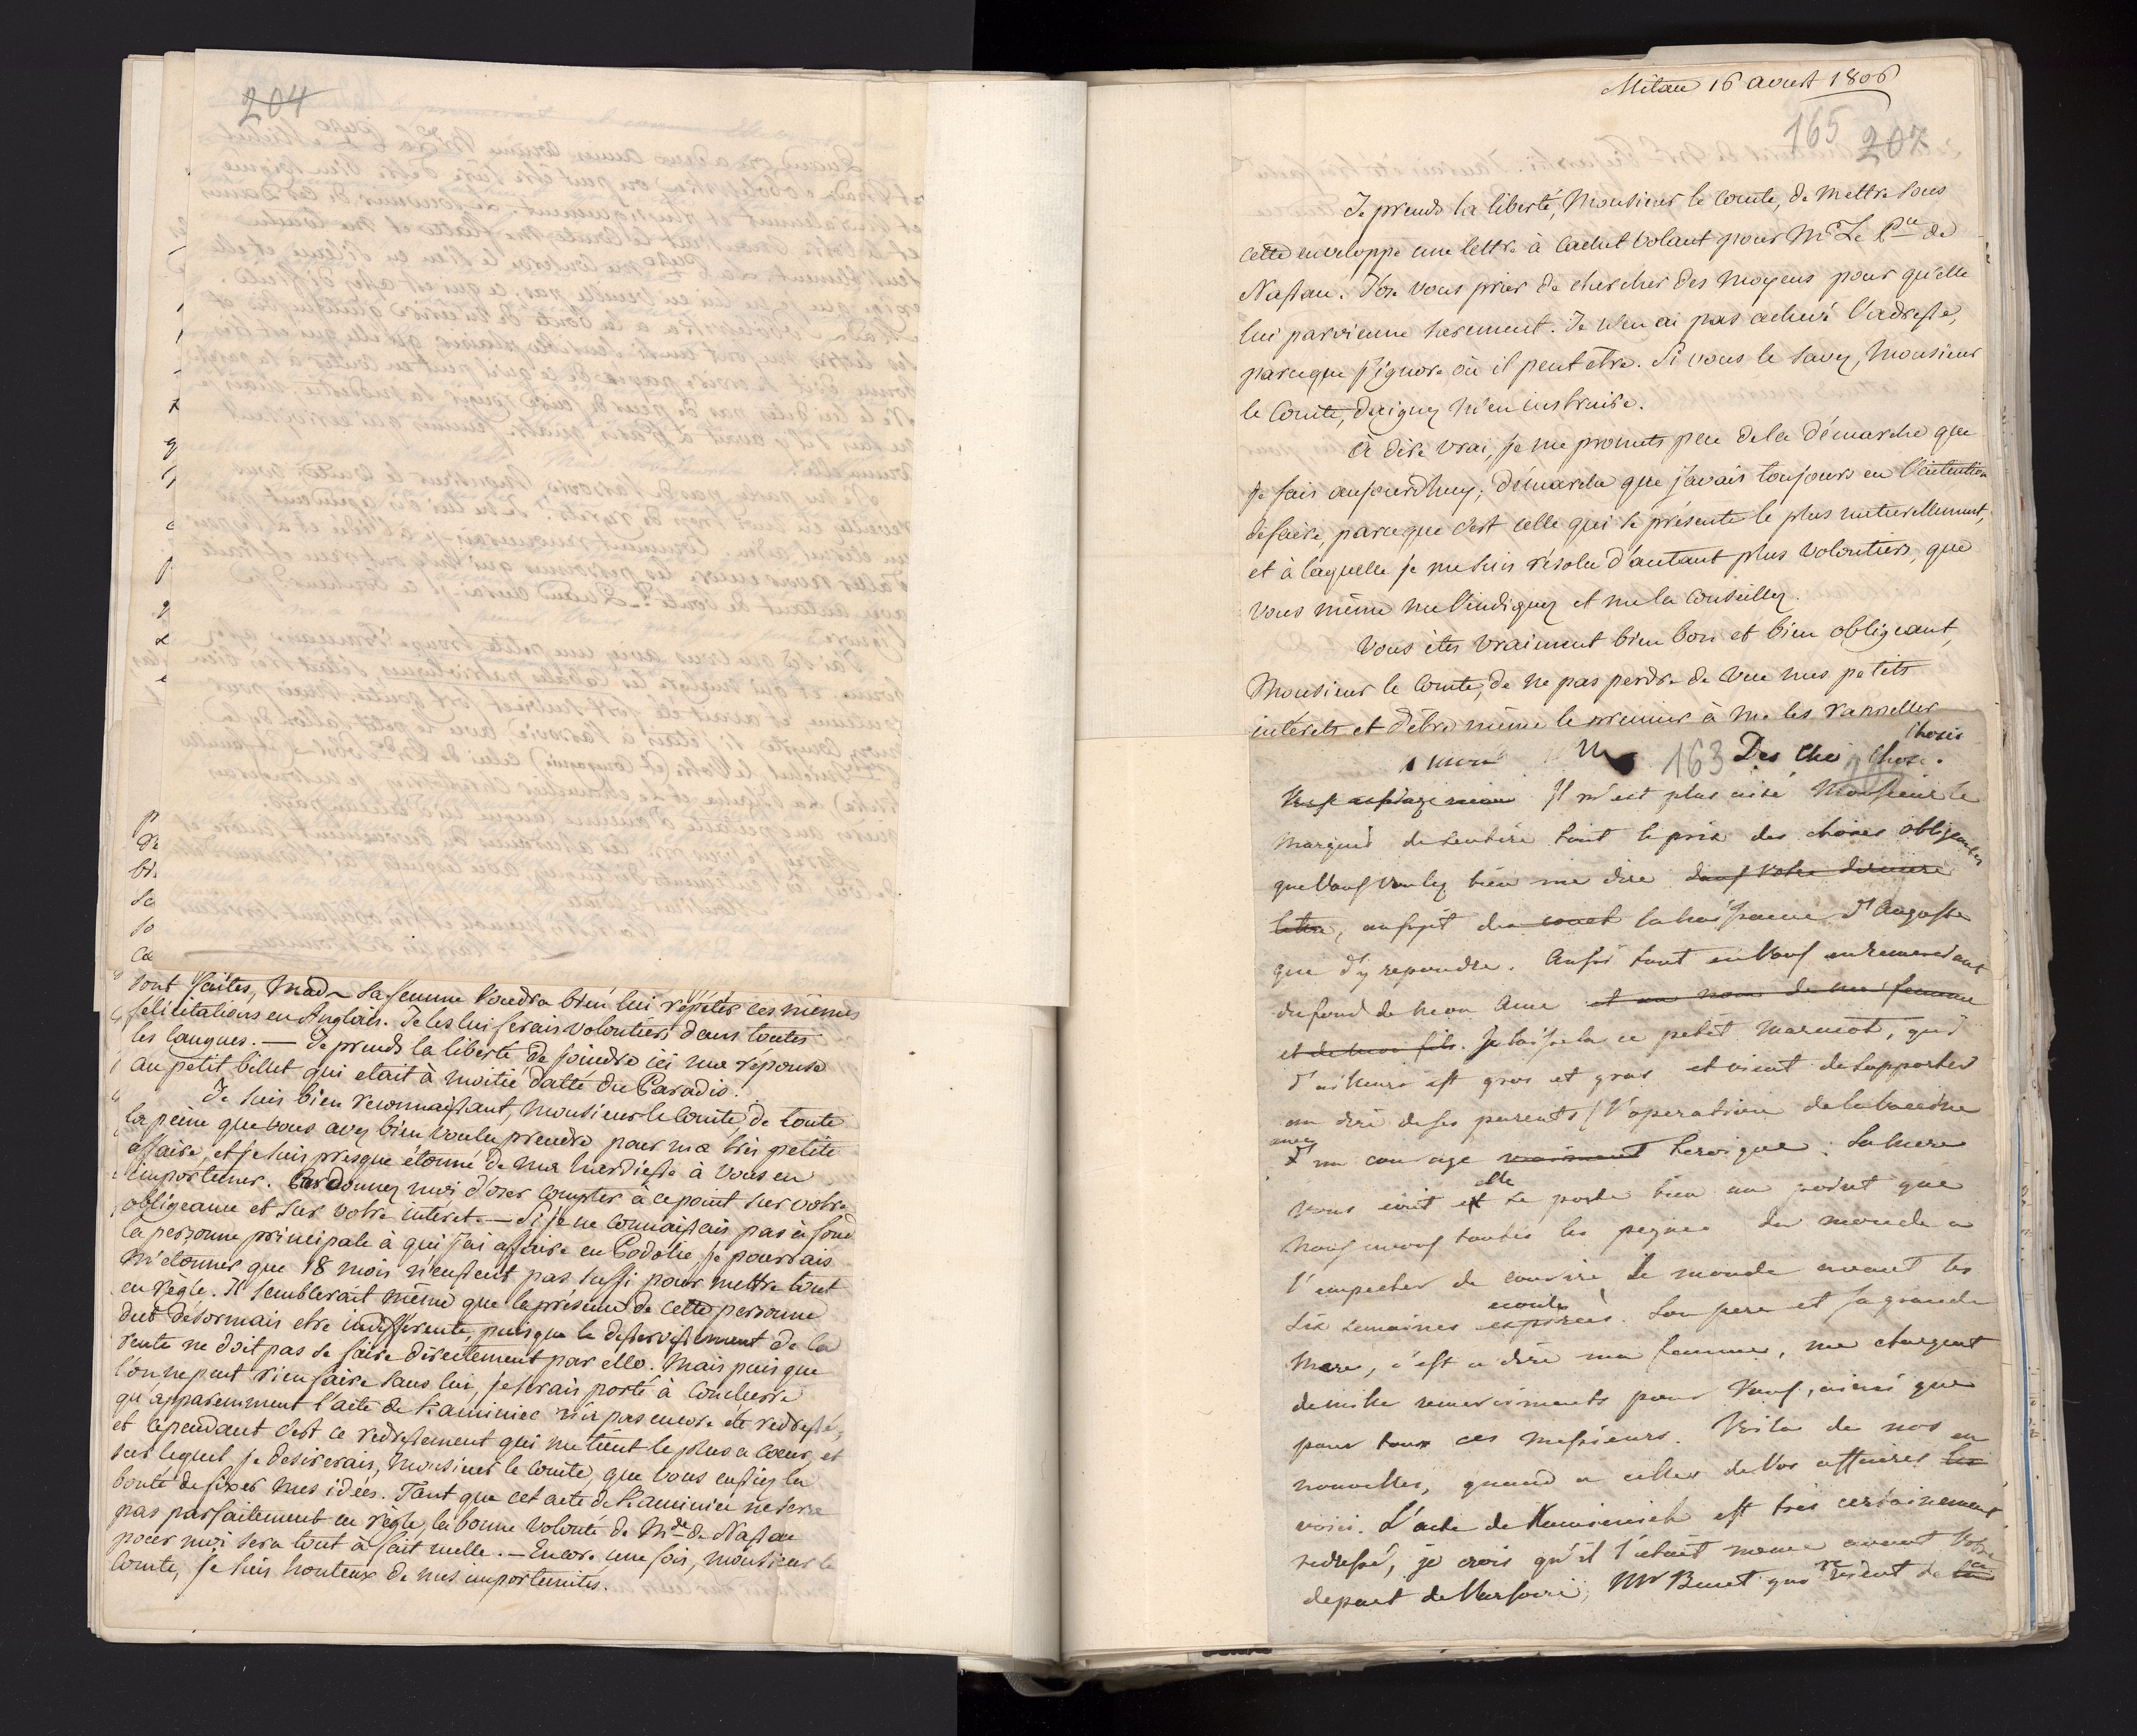 204
sont faites, Mad~ sa femme voudra bien lui répéter ces mêmes
félicitations en Anglais. Je les lui ferais volontiers dans toutes
les langues. — Je prends la liberté de joindre ici ma réponse
au petit billet qui etait à moitié datté du Paradis.
Je suis bien reconnaissant, Monsieur le Comte, de toute
la peine que vous avez bien voulu prendre pour ma très petite
affaire, et je suis presque étonné de ma hardiesse à vous en
importuner. Pardonnez moi d'oser compter à ce point sur votre
obligeance et sur votre interet. — Si je ne connaissais pas à fond
la personne principale à qui j'ai affaire en Podolie je pourrais
m'etonner que 18 mois n'eussent pas suffi pour mettre tout
en règle. Il semblerait même que la présence de cette personne
dut désormais etre indifférente, puisque le desservissement de la
rente ne doit pas se faire directement par elle. Mais puisque
l'on ne peut rien faire sans lui, je serais porté à conclure
qu'apparemment l'acte de Kaminiec n'a pas encore été redressé,
et cependant c'est ce redressement qui me tient le plus a cœur, et
sur lequel je desirerais, Monsieur le Comte, que vous eussiez la
bonté de fixer mes idées. Tant que cet acte de Kaminiec ne sera
pas parfaitement en règle, la bonne volonté de Mde de Nassau
pour moi sera tout à fait nulle. — Encore une fois, Monsieur le
Comte, je suis honteux de mes importunités.
Mitau 16 aoust 1806
165 207
Je prends la liberté, Monsieur le Comte, de mettre sous
cette enveloppe une lettre à cachet volant pour Mr Le Pce de
Nassau. J'ose vous prier de chercher des moyens pour qu'elle
lui parvienne surement. Je n'en ai pas achevé l'adresse,
parceque j'ignore où il peut être. Si vous le savez, Monsieur
le Comte, daignez m'en instruire.
A dire vrai, je me promets peu de la démarche que
je fais aujourd'huy; démarche que j'avais toujours eu l'intention
de faire, parceque c'est celle qui se présente le plus naturellement,
et à laquelle je me suis résolu d'autant plus volontiers, que
vous même me l'indiquez et me la conseillez.
Vous êtes vraiment bien bon et bien obligeant,
Monsieur le Comte, de ne pas perdre de vue mes petits
intérets et d'être même le premier à me les rappeller
163 Des Cho
Il m'est plus aisé Monsieur le
Marquis de sentire tout le prix des choses obligeantes
que Vous voulez bien me dire dans votre derniere
lettre, au sujet de la naissance d'Auguste
que d'y repondre. Aussi tout en Vous en remerciant
du fond de mon Ame et au nom de ma femme
et de mon fils. Je laisse la ce petit marmot, qui
d'ailleurs est gros et gras et vient de supporter
au dire de ses parents l'operation de la vaccine
avec
d'un courage vraiment heroique. Sa mere
elle
vous ecrit et se porte bien au point que
nous avons toutes les peines du monde a
l'empecher de courire le monde avant les
six semaines ecoulées. Son pere et sa grande
Mere, c'est a dire ma femme, me chargent
de mille remerciments pour Vous, ainsi que
pour tous ces messieurs. Voila de nos
nouvelles, quand a celles de Vos affaires les en
voici. L'acte de Kaminiek est tres certainement
redressé, je crois qu'il l'etait meme avant Votre
depart de Varsovie, Mr Buret qui revient de